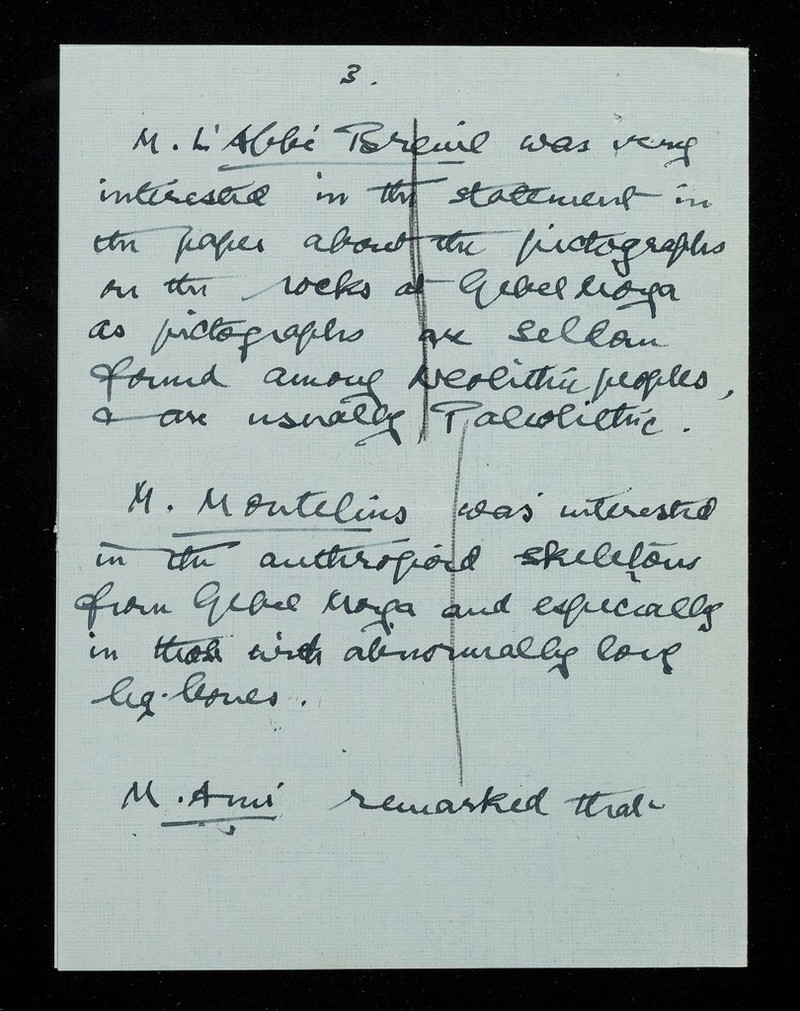 3.
M. L'Abbé Breuil was very
interested in the statement in
the paper about the pictographs
on the rocks at Gebel Moya
as pictographs are seldom
found among Neolithic peoples,
& are usually Paleolithic.
M. Montelius was interested
in the anthropoid skeletons
from Gebel Moya and especially
in those with abnormally long
leg-bones.
M. Ami remarked that